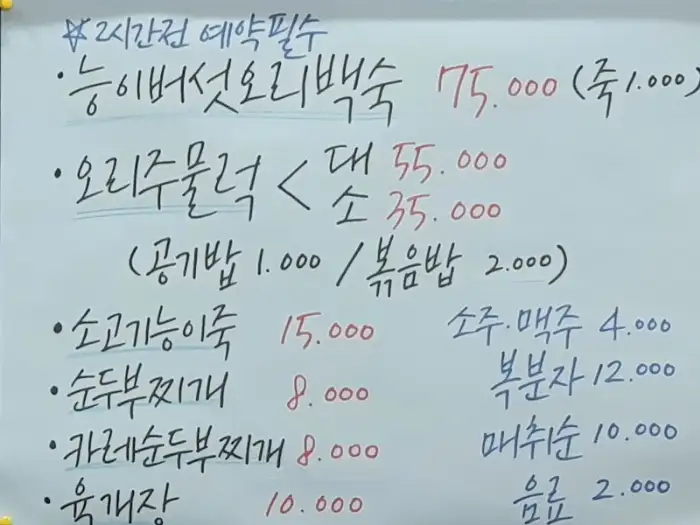 ☆2시간전 예약필수
·능이버섯오리백숙 75.000 (죽 1.000)
·오리주물럭 < 대 55.000
소 35.000
(공기밥 1.000 / 볶음밥 2.000)
·소고기능이죽 15.000 소주·맥주 4.000
·순두부찌개 8.000 복분자 12.000
·카레순두부찌개 8.000 매취순 10.000
·육개장 10.000 음료 2.000